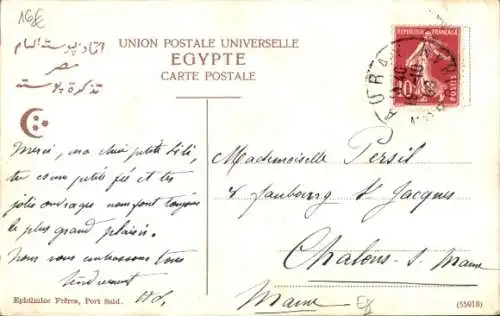 16€
UNION POSTALE UNIVERSELLE
EGYPTE
CARTE POSTALE
اتحاد بوستة العام
مصر
تذكرة بوستة
REPUBLIQUE FRANÇAISE
10
POSTES
Merci, ma chère petite Lili,
tu es une petite fée et tes
jolis ouvrages nous font toujours
le plus grand plaisir.
Nous vous embrassons tous
tendrement
Mademoiselle Persil
8 Faubourg St Jacques
Chalons s. Marne
Marne
Ephtimios Frères, Port Said.
(55918)